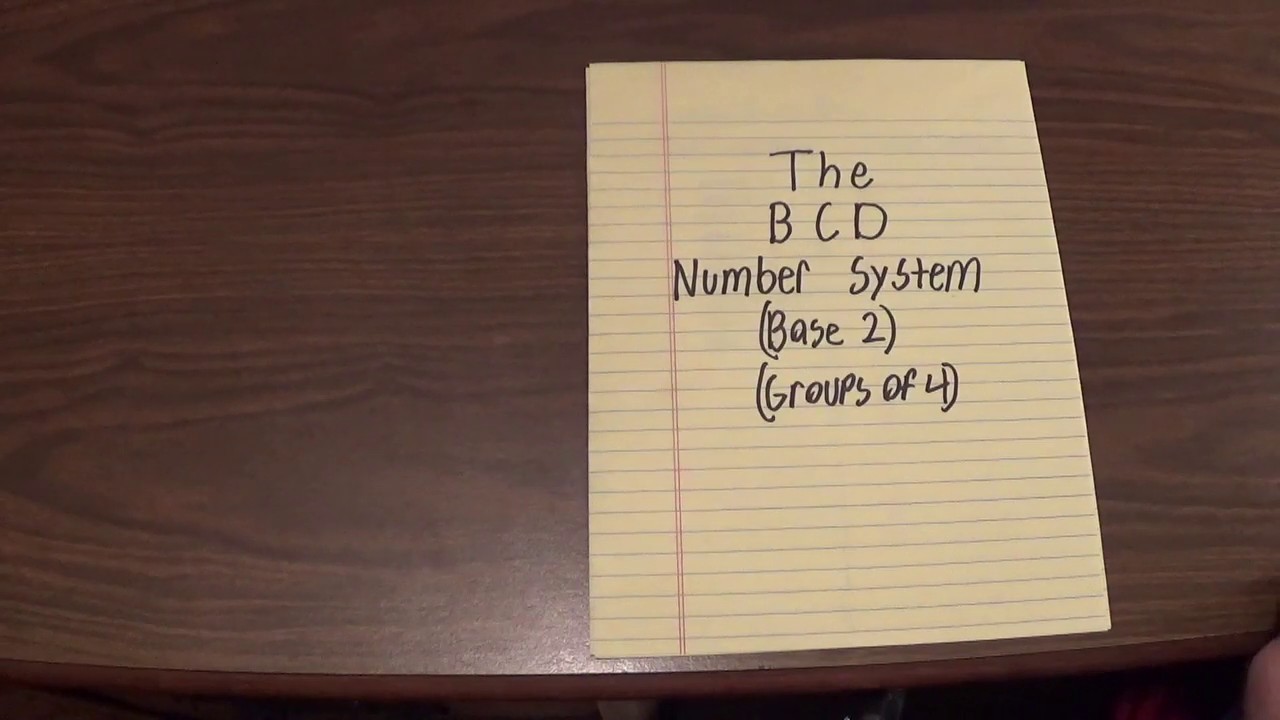 The
BCD
Number System
(Base 2)
(Groups of 4)